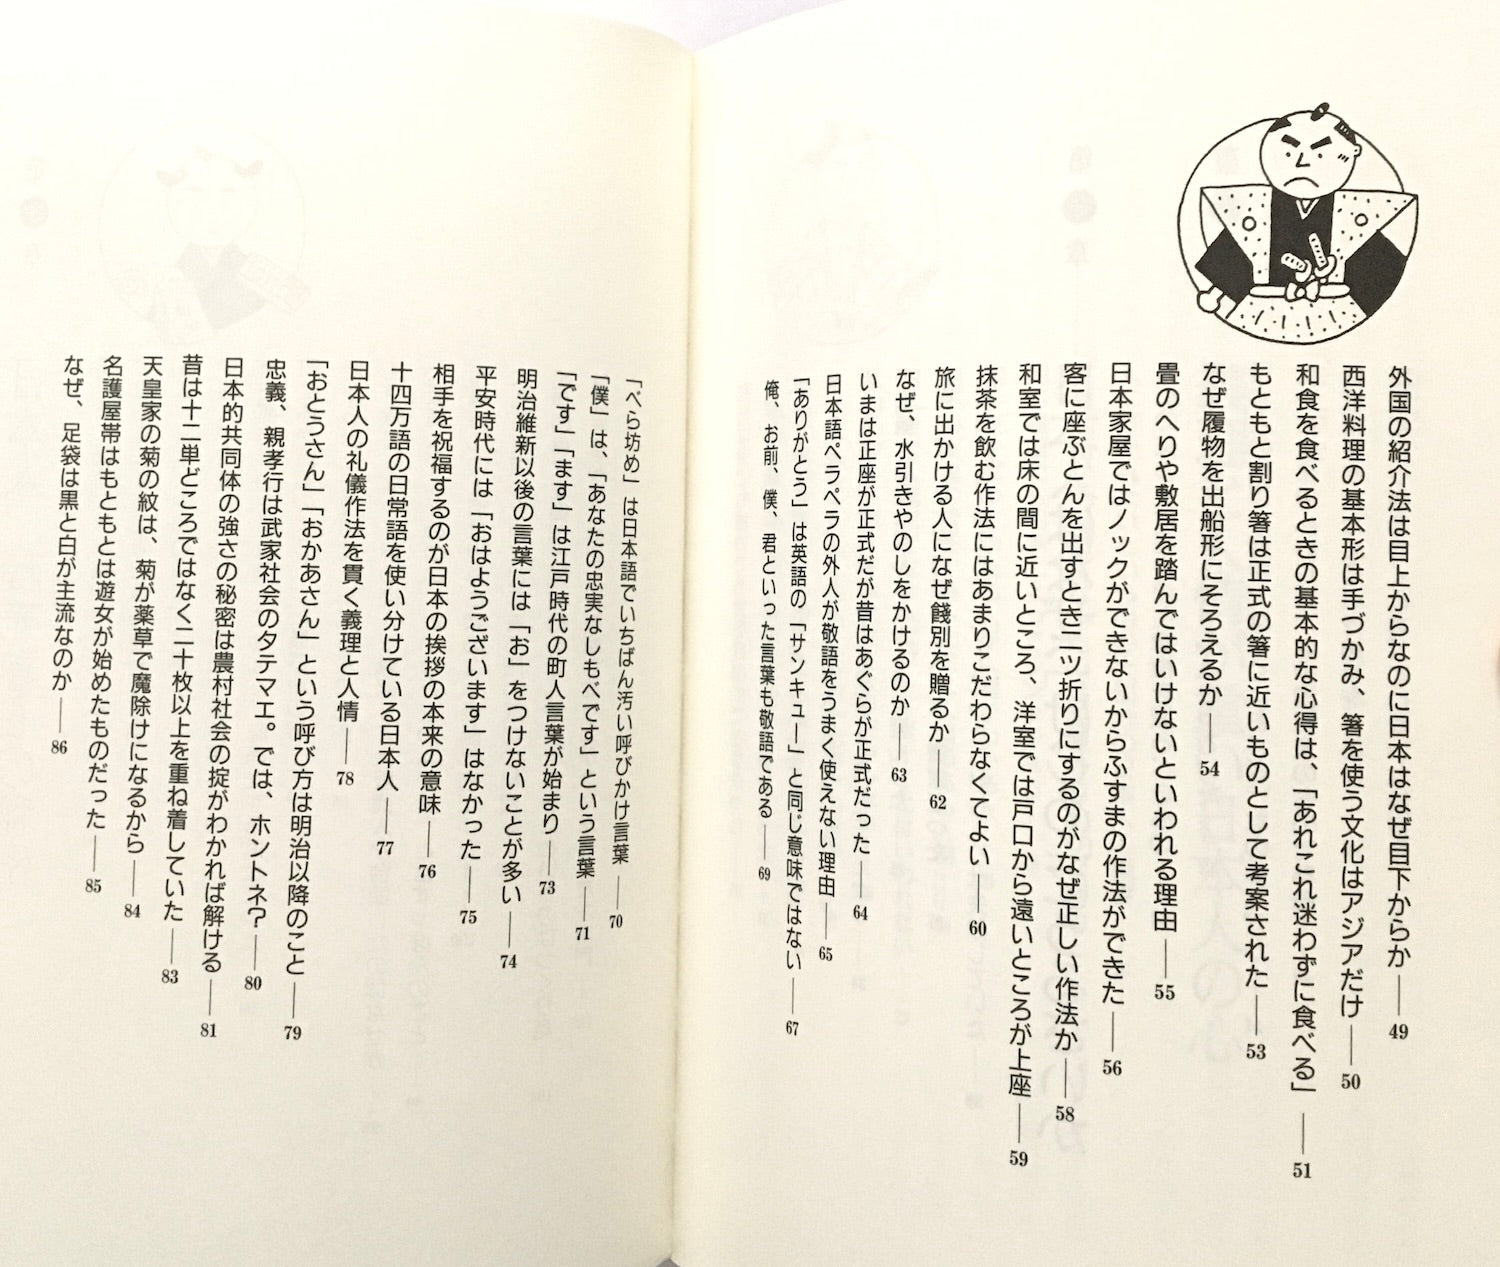 外国の紹介法は目上からなのに日本はなぜ目下からか――49
西洋料理の基本形は手づかみ、箸を使う文化はアジアだけ――50
和食を食べるときの基本的な心得は、「あれこれ迷わずに食べる」――51
もともと割り箸は正式の箸に近いものとして考案された――53
なぜ履物を出船形にそろえるか――54
畳のへりや敷居を踏んではいけないといわれる理由――55
日本家屋ではノックができないからふすまの作法ができた――56
客に座ぶとんを出すとき二ツ折りにするのがなぜ正しい作法か――58
和室では床の間に近いところ、洋室では戸口から遠いところが上座――59
抹茶を飲む作法にはあまりこだわらなくてよい――60
旅に出かける人になぜ餞別を贈るか――62
なぜ、水引きやのしをかけるのか――63
いまは正座が正式だが昔はあぐらが正式だった――64
日本語ペラペラの外人が敬語をうまく使えない理由――65
「ありがとう」は英語の「サンキュー」と同じ意味ではない――67
俺、お前、僕、君といった言葉も敬語である――69
「べら坊め」は日本語でいちばん汚い呼びかけ言葉――70
「僕」は、「あなたの忠実なしもべです」という言葉――71
「です」「ます」は江戸時代の町人言葉が始まり――73
明治維新以後の言葉には「お」をつけないことが多い――74
平安時代には「おはようございます」はなかった――75
相手を祝福するのが日本の挨拶の本来の意味――76
十四万語の日常語を使い分けている日本人――77
日本人の礼儀作法を貫く義理と人情――78
「おとうさん」「おかあさん」という呼び方は明治以降のこと――79
忠義、親孝行は武家社会のタテマエ。では、ホントネ?――80
日本的共同体の強さの秘密は農村社会の掟がわかれば解ける――81
昔は十二単どころではなく二十枚以上を重ね着していた――83
天皇家の菊の紋は、菊が薬草で魔除けになるから――84
名護屋帯はもともとは遊女が始めたものだった――85
なぜ、足袋は黒と白が主流なのか――86